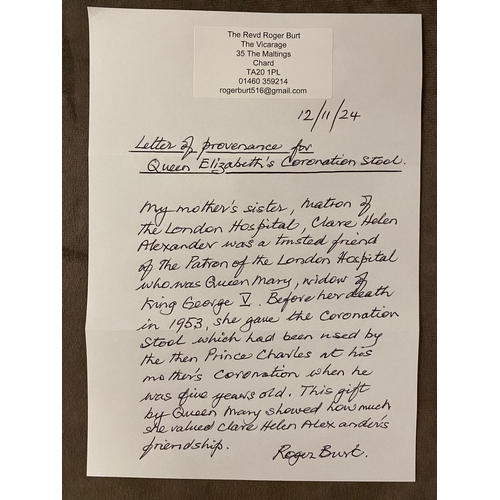 The Revd Roger Burt
The Vicarage
35 The Maltings
Chard
TA20 1PL
01460 359214
rogerburt516@gmail.com
12/11/24
Letter of provenance for
Queen Elizabeth's Coronation Stool.
My mother's sister, Matron of
the London Hospital, Clare Helen
Alexander was a trusted friend
of The Patron of the London Hospital
who was Queen Mary, widow of
King George V. Before her death
in 1953, she gave the Coronation
Stool which had been used by
the then Prince Charles at his
mother's Coronation when he
was five years old. This gift
by Queen Mary showed how much
she valued Clare Helen Alexander's
friendship.
Roger Burt.